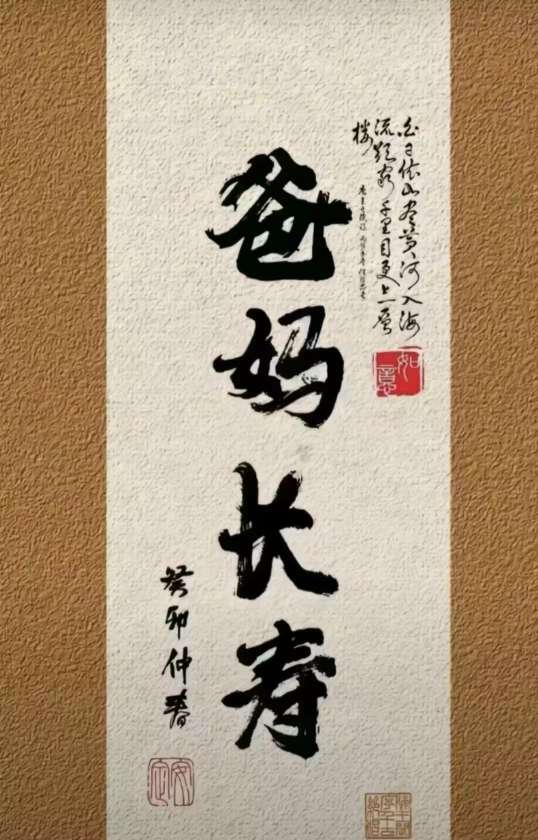 白日依山尽黄河入海
流欲穷千里目更上一层
楼
爸妈长寿
癸卯仲春
如意